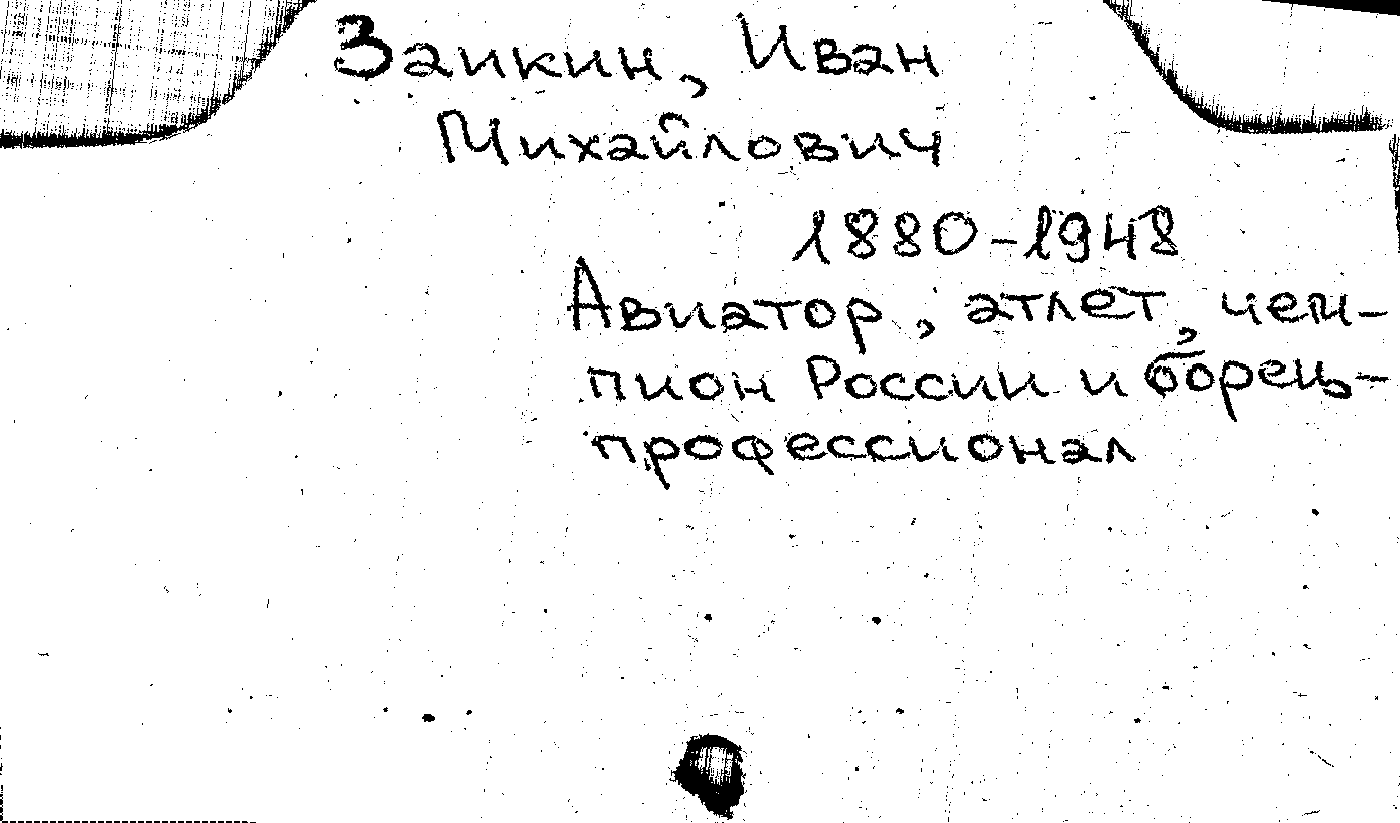 Заикин, Иван
Михайлович
1880-1948
Авиатор, атлет, чем-
пион России и борец-
профессионал